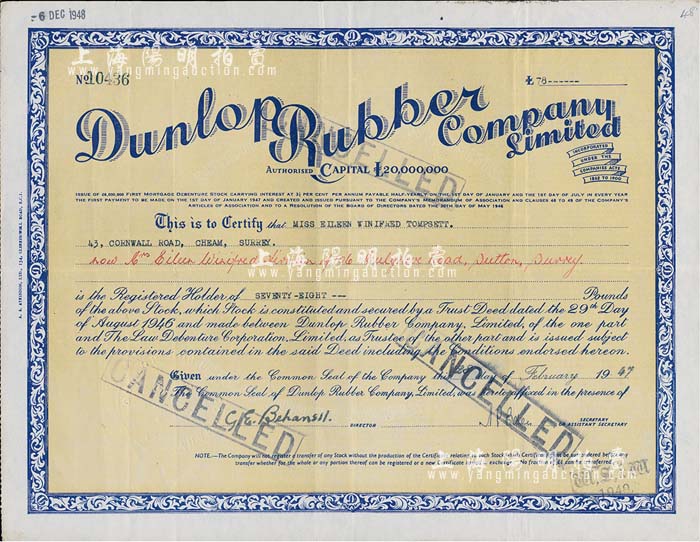 - 6 DEC 1948
48
上海陽明拍賣
www.yangmingauction.com
No. 10436
£ 78------
Dunlop Rubber Company Limited
INCORPORATED UNDER THE COMPANIES ACTS 1862 TO 1890
AUTHORISED CAPITAL £20,000,000
CANCELLED
ISSUE OF £6,000,000 FIRST MORTGAGE DEBENTURE STOCK CARRYING INTEREST AT 3½ PER CENT PER ANNUM PAYABLE HALF-YEARLY ON THE 1ST DAY OF JANUARY AND THE 1ST DAY OF JULY IN EVERY YEAR
THE FIRST PAYMENT TO BE MADE ON THE 1ST DAY OF JANUARY 1947 AND CREATED AND ISSUED PURSUANT TO THE COMPANY'S MEMORANDUM OF ASSOCIATION AND CLAUSES 46 TO 49 OF THE COMPANY'S
ARTICLES OF ASSOCIATION AND TO A RESOLUTION OF THE BOARD OF DIRECTORS DATED THE 30TH DAY OF MAY 1946
This is to Certify that MISS EILEEN WINIFRED TOMPSETT.
43, CORNWALL ROAD, CHEAM, SURREY.
now Mrs Eileen Winifred Road, Sutton, Surrey
上海陽明拍賣
www.yangmingauction.com
is the Registered Holder of SEVENTY-EIGHT --- Pounds
of the above Stock, which Stock is constituted and secured by a Trust Deed dated the 29th Day
of August 1946 and made between Dunlop Rubber Company, Limited, of the one part
and The Law Debenture Corporation, Limited, as Trustee of the other part and is issued subject
to the provisions contained in the said Deed including the Conditions endorsed hereon.
Given under the Common Seal of the Company this day of February 1947
The Common Seal of Dunlop Rubber Company, Limited, was hereto affixed in the presence of
CANCELLED
CANCELLED
DIRECTOR
SECRETARY
OR ASSISTANT SECRETARY
NOTE.—The Company will not register a transfer of any Stock without the production of the Certificate relating to such Stock which Certificate must be surrendered before any
transfer whether for the whole or any portion thereof can be registered or a new Certificate issued in exchange. No fraction of a £ can be transferred.
上海陽明拍賣
www.yangmingauction.com
A. E. ATKINSON, LTD., CLERKENWELL ROAD, E.C.1.